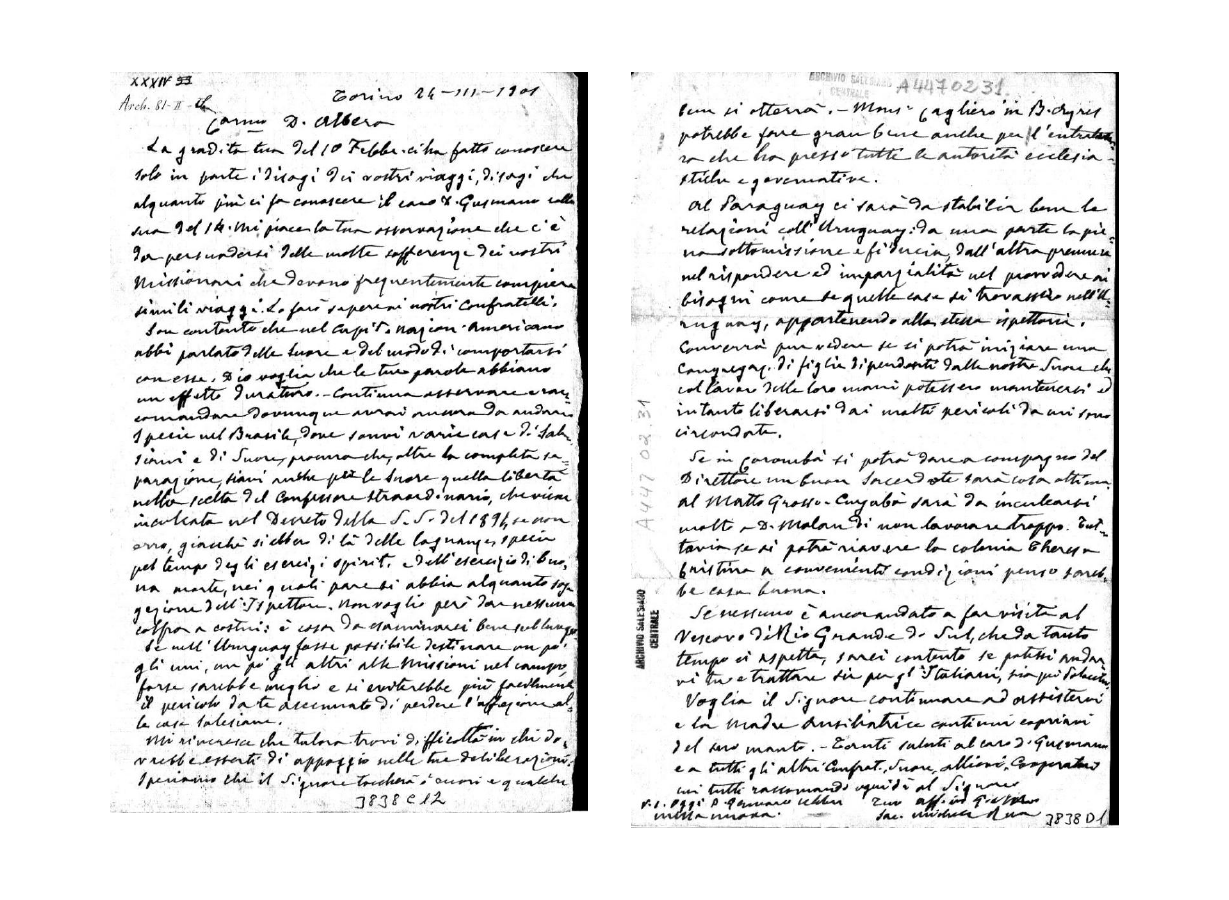 XXXIV 93
Arch. 81-II-
Torino 24-III-1901
Car.mo D. Albera
La gradita tua del 10 Febb. ci ha fatto conoscere
solo in parte i disagi dei vostri viaggi, disagi che
alquanto più ci fa conoscere il caro D. Gusmano colla
sua del 14. Mi piace la tua osservazione che c'è
da persuadersi delle molte sofferenze dei nostri
Missionari che devono frequentemente compiere
simili viaggi. Lo farò sapere ai nostri Confratelli.
Son contento che nel Capit.o nazion. Americano
abbi parlato delle Suore e del modo di comportarsi
con esse. Dio voglia che le tue parole abbiano
un effetto duraturo. - Continua osservare e rac-
comandare dovunque avrai ancora da andare
Specie nel Brasile, dove sonvi varie case di Sale-
siani e di Suore, procura che, oltre la completa se-
parazione, siavi anche per le Suore quella libertà
nella scelta del Confessore straordinario, che viene
inculcata nel Decreto della S. S. del 1891, se non
erro, giacchè si ebber di là delle lagnanze, specie
pel tempo degli esercizi spirit. e dell'esercizio di buo-
na morte, nei quali pare si abbia alquanto sog-
gezione dell'Ispettore. Non voglio però dar nessuna
colpa a costui: è cosa da esaminarsi bene sul luogo.
Se nell'Uruguay fosse possibile destinare un po'
gli uni, un po' gli altri alle Missioni nel campo,
forse sarebbe meglio e si eviterebbe più facilmente
il pericolo da te accennato di perdere l'affezione al-
le case salesiane.
Mi rincresce che talora trovi difficoltà in chi do-
vrebbe esserti di appoggio nelle tue deliberazioni.
Speriamo che il Signore toccherà i cuori e qualche
3838 C 12
ARCHIVIO SALESIANO
CENTRALE
A4470231
ben si otterrà. - Mons. Cagliero in B. Ayres
potrebbe fare gran bene anche per l'entratu-
ra che ha presso tutte le autorità ecclesia-
stiche e governative.
Al Paraguay ci sarà da stabilir bene le
relazioni coll'Uruguay: da una parte la pie-
na sottomissione e fiducia, dall'altra premura
nel rispondere ed imparzialità nel provvedere ai
bisogni come se quelle case si trovassero nell'U-
ruguay, appartenendo alla stessa ispettoria.
Converrà pur vedere se si potrà iniziare una
Congregaz. di figlie dipendenti dalle nostre Suore che
col lavoro delle loro mani potessero mantenersi ed
intanto liberarsi dai molti pericoli da cui sono
circondate.
Se in Corombà si potrà dare a compagno del
Direttore un buon Sacerdote sarà cosa ottima.
al Matto Grosso-Cuyabà sarà da inculcarsi
molto a D. Malan di non lavorare troppo. Tut-
tavia se si potrà riavere la colonia Theresa
Cristina a convenienti condizioni penso sareb-
be cosa buona.
Se nessuno è ancor andato a far visita al
Vescovo di Rio Grande do Sul, che da tanto
tempo ci aspetta, sarei contento se potessi andar-
vi tu e trattare sia per gl'Italiani, sia pei Polacchi.
Voglia il Signore continuare ad assistervi
e la Madre Ausiliatrice continui coprirvi
del suo manto. - Tanti saluti al caro D. Gusmano
e a tutti gli altri Confrat., Suore, allievi, Cooperatori
cui tutti raccomando ogni dì al Signore
P.S. Oggi D. Gennaro celebra
messa nuova.
Tuo aff.mo in G. e M.
Sac. Michele Rua
3838 D 1
A447 02.31
ARCHIVIO SALESIANO
CENTRALE